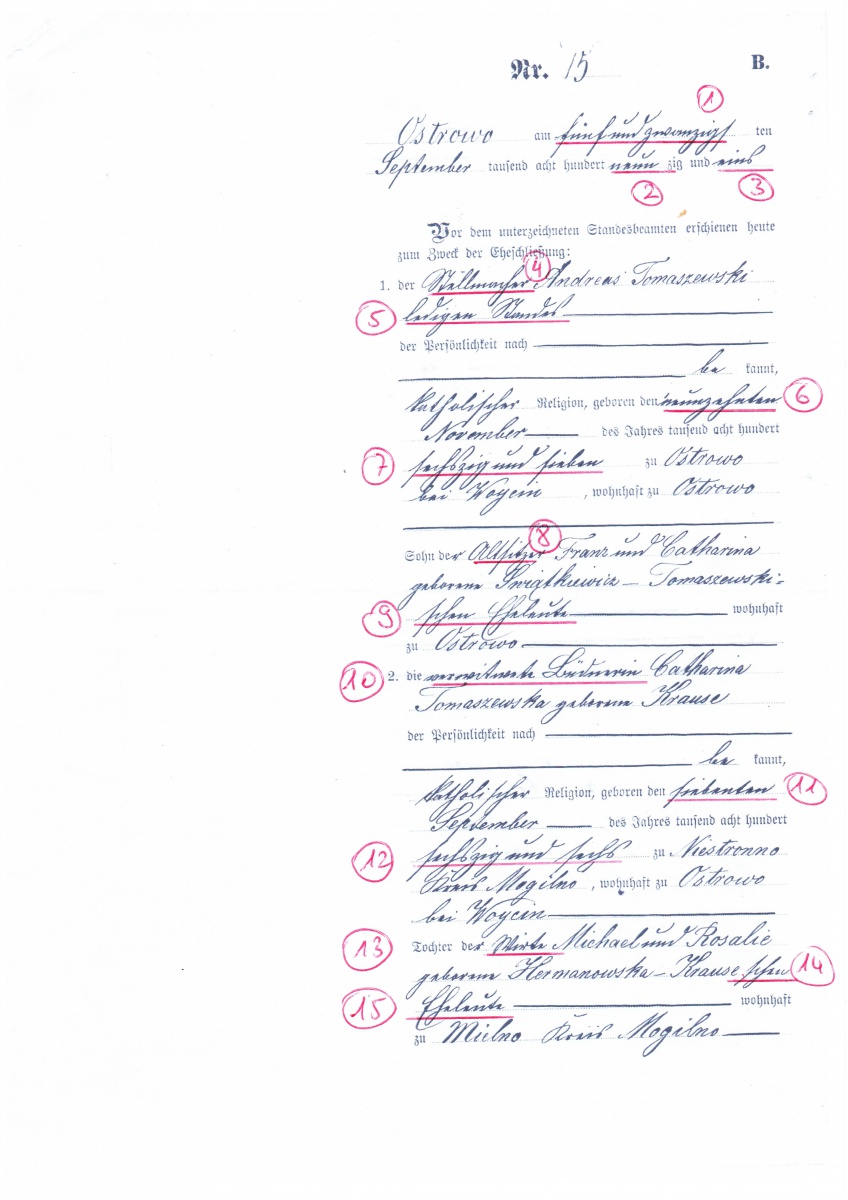 Nr. 15 B.
1
Ostrowo am fünf und zwanzigs ten
September tausend acht hundert neun zig und eins
2 3
Vor dem unterzeichneten Standesbeamten erschienen heute
zum Zweck der Eheschließung:
4
1. der Stellmacher Andreas Tomaszewski
5 ledigen Standes
der Persönlichkeit nach
be kannt,
katholischer Religion, geboren den neunzehnten 6
November des Jahres tausend acht hundert
7 sechszig und sieben zu Ostrowo
bei Woycin, wohnhaft zu Ostrowo
8
Sohn der Altsitzer Franz und Catharina
geborene Świątkiewicz – Tomaszewski-
9 schen Eheleute wohnhaft
zu Ostrowo
10 2. die verwitwete Büdnerin Catharina
Tomaszewska geborene Krause
der Persönlichkeit nach
be kannt,
katholischer Religion, geboren den siebenten 11
September des Jahres tausend acht hundert
12 sechszig und sechs zu Niestronno
Kreis Mogilno, wohnhaft zu Ostrowo
bei Woycin
13 Tochter der Wirte Michael und Rosalie
geborene Hermanowska – Krause schen 14
15 Eheleute wohnhaft
zu Mielno Kreis Mogilno